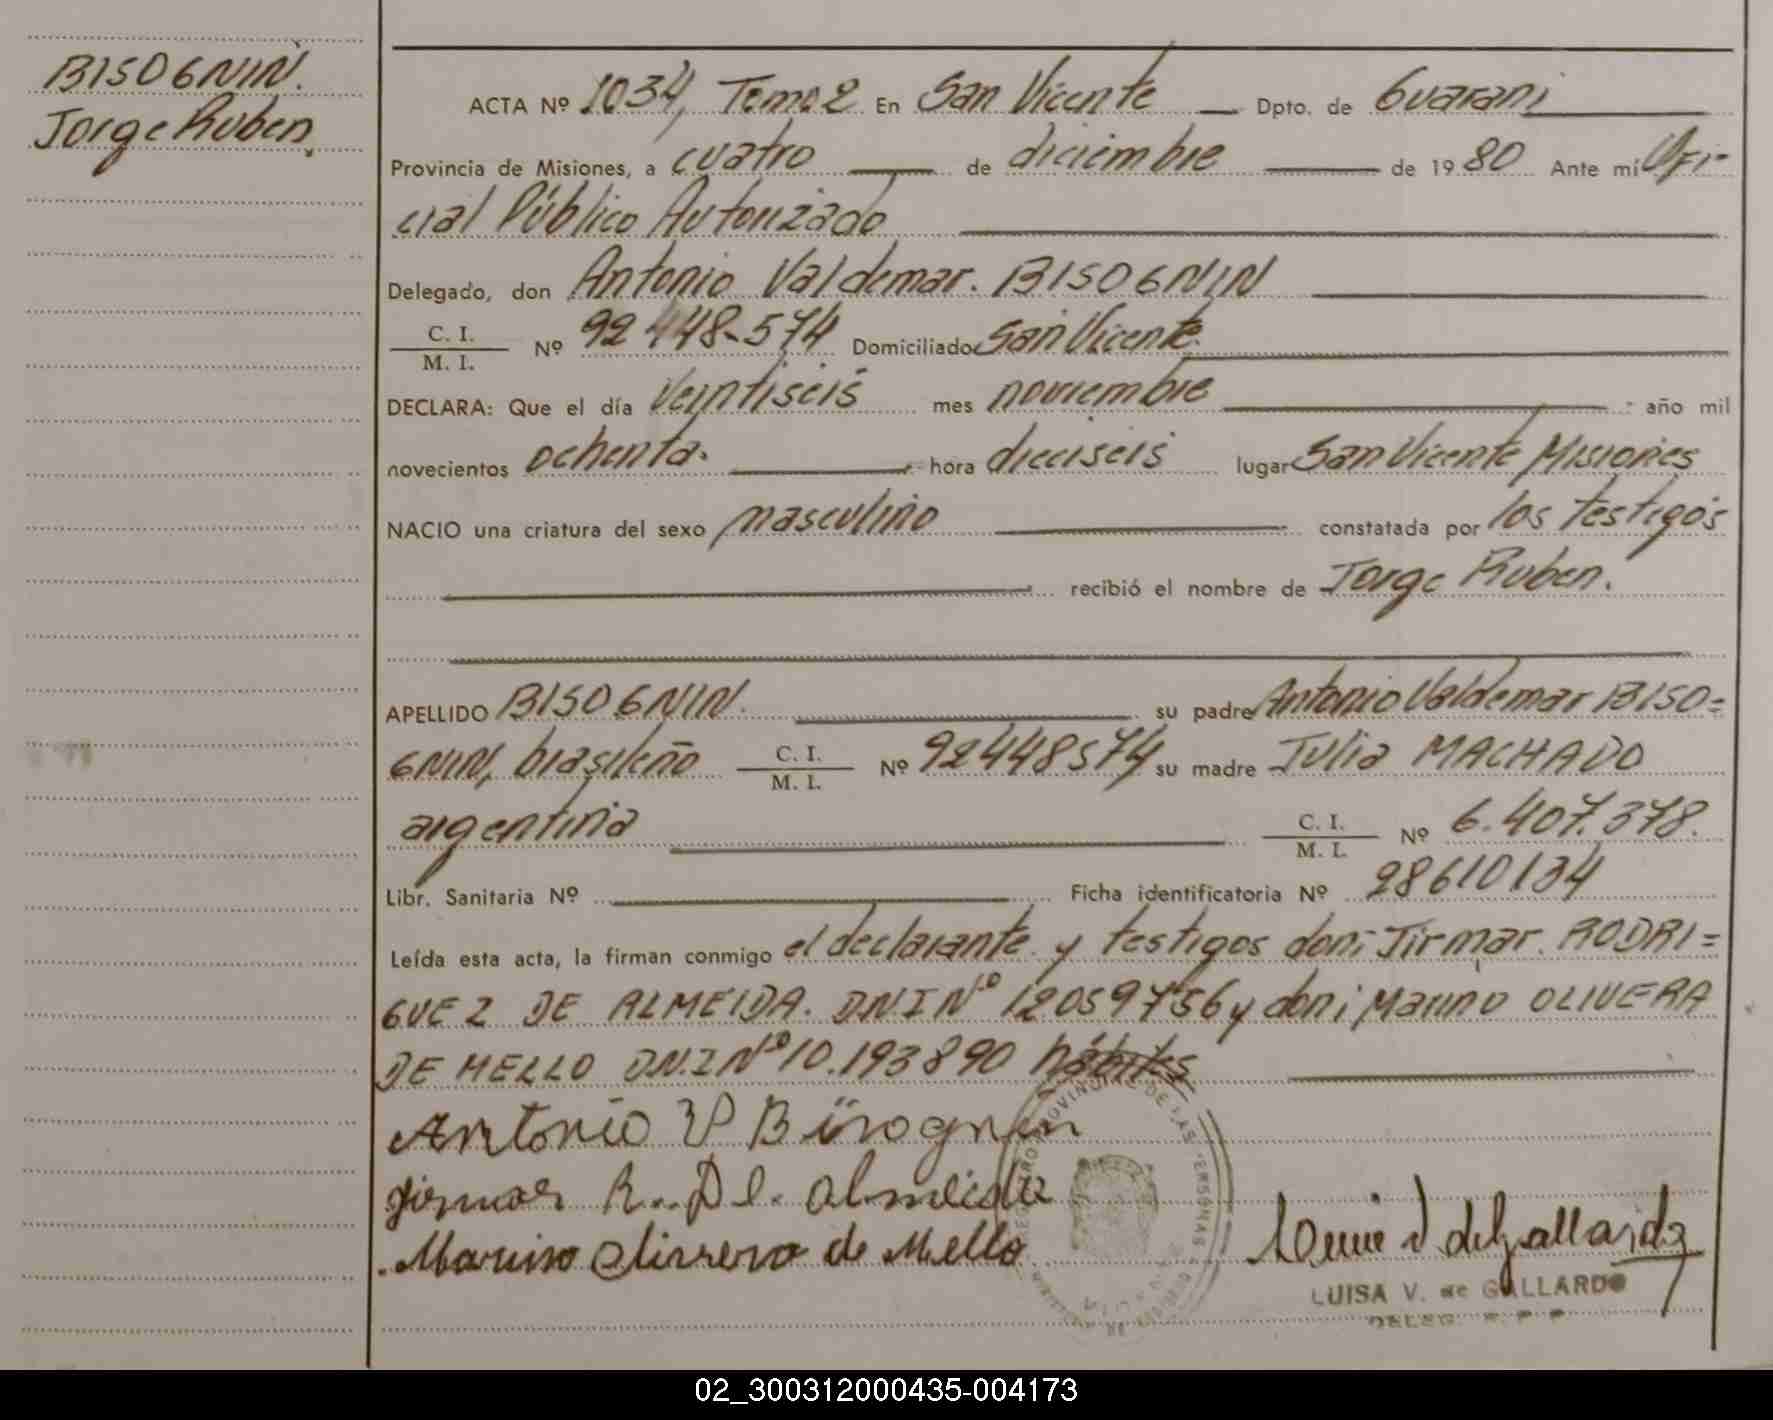 BISOGNIN.
Jorge Ruben,
ACTA Nº 1034, Tomo 2 En San Vicente Dpto. de Guarani
Provincia de Misiones, a cuatro de diciembre de 1980 Ante mí Ofi-
cial Público Autorizado
Delegado, don Antonio Valdemar. BISOGNIN
C. I.
M. I. Nº 92448-574 Domiciliado San Vicente.
DECLARA: Que el día Veintiseis mes noviembre año mil
novecientos ochenta. hora dieciseis lugar San Vicente Misiones
NACIO una criatura del sexo masculino constatada por los testigos
recibió el nombre de Jorge Ruben.
APELLIDO BISOGNIN. su padre Antonio Valdemar BISO=
GNIN, brasileño C. I.
M. I. Nº 92448574 su madre Julia MACHADO
argentina C. I.
M. I. Nº 6.407.378.
Libr. Sanitaria Nº Ficha identificatoria Nº 28610134
Leída esta acta, la firman conmigo el declarante y testigos don: Jirmar. RODRI=
GUEZ DE ALMEIDA. DNI Nº 12059756 y don: Marino OLIVERA
DE MELLO D.N.I Nº 10.193890 hábiles
Antonio V Bisognin
Jirmar R. De. almeida
Marino Olivera de Mello
LUISA V. de GALLARDO
02_300312000435-004173